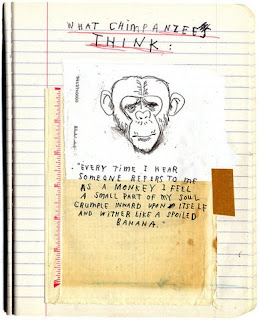 WHAT CHIMPANZEES
THINK:
"EVERY TIME I HEAR
SOMEONE REFERS TO ME
AS A MONKEY I FEEL
A SMALL PART OF MY SOUL
CRUMPLE INWARD UPON ITSELF
AND WITHER LIKE A SPOILED
BANANA."